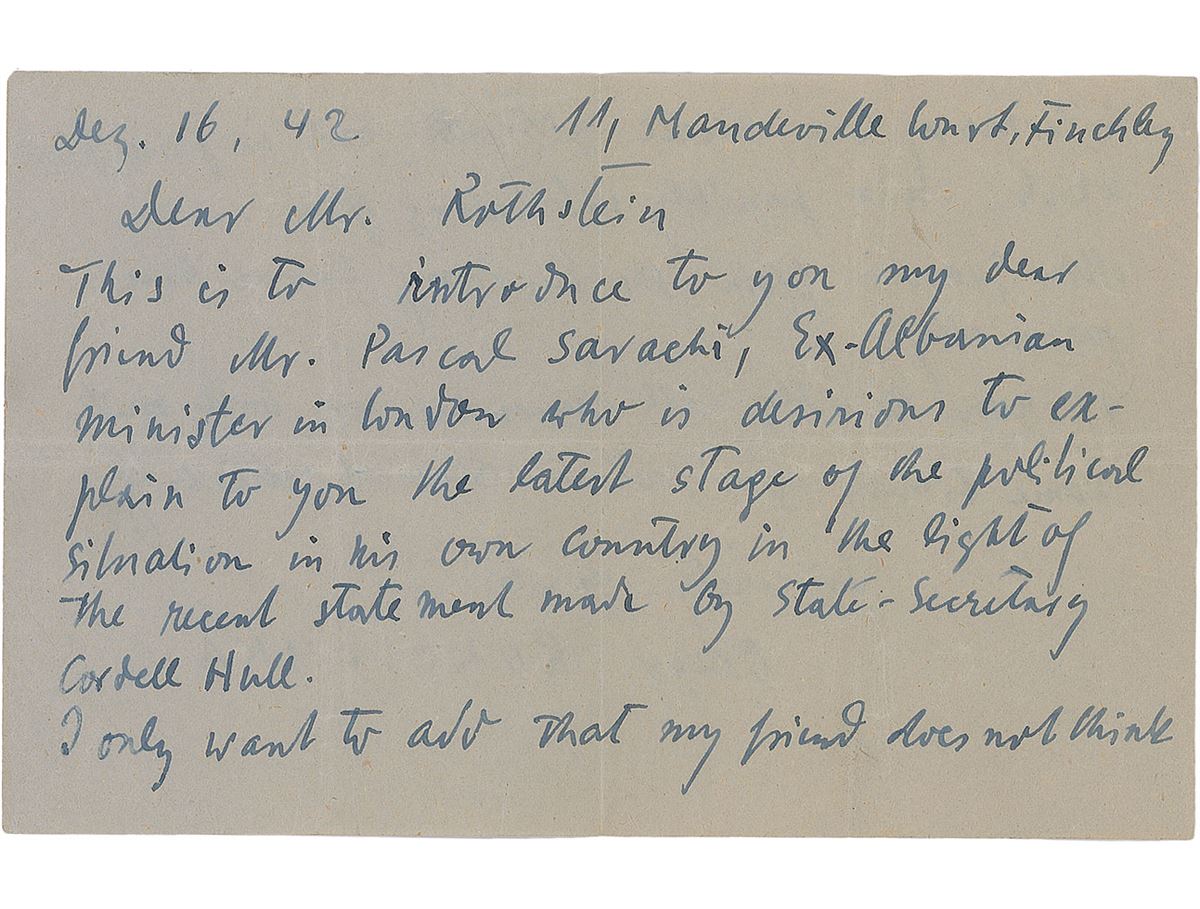 Dez. 16, 42 11, Mandeville Court, Finchley
Dear Mr. Rothstein
This is to introduce to you my dear
friend Mr. Pascal Sarachi, Ex-Albanian
minister in London who is desirious to ex-
plain to you the latest stage of the political
situation in his own country in the light of
the recent statement made by State-Secretary
Cordell Hull.
I only want to add that my friend does not think